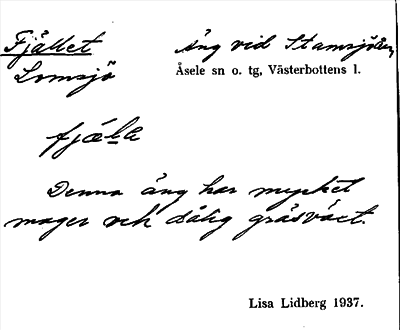 Fjället
Lomsjö
Äng vid Stamsjöån,
Åsele sn o. tg, Västerbottens l.
fjäl̲e
Denna äng har mycket
mager och dålig gräsväxt.
Lisa Lidberg 1937.